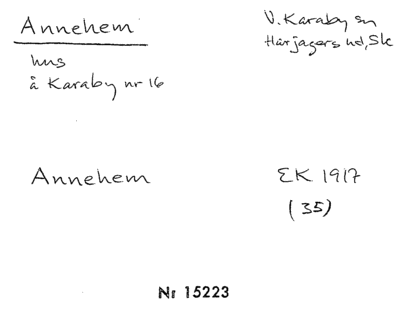 Annehem
V. Karaby sn
Harjagers hd, Sk
hus
å Karaby nr 16
Annehem
EK 1917
(35)
Nr 15223